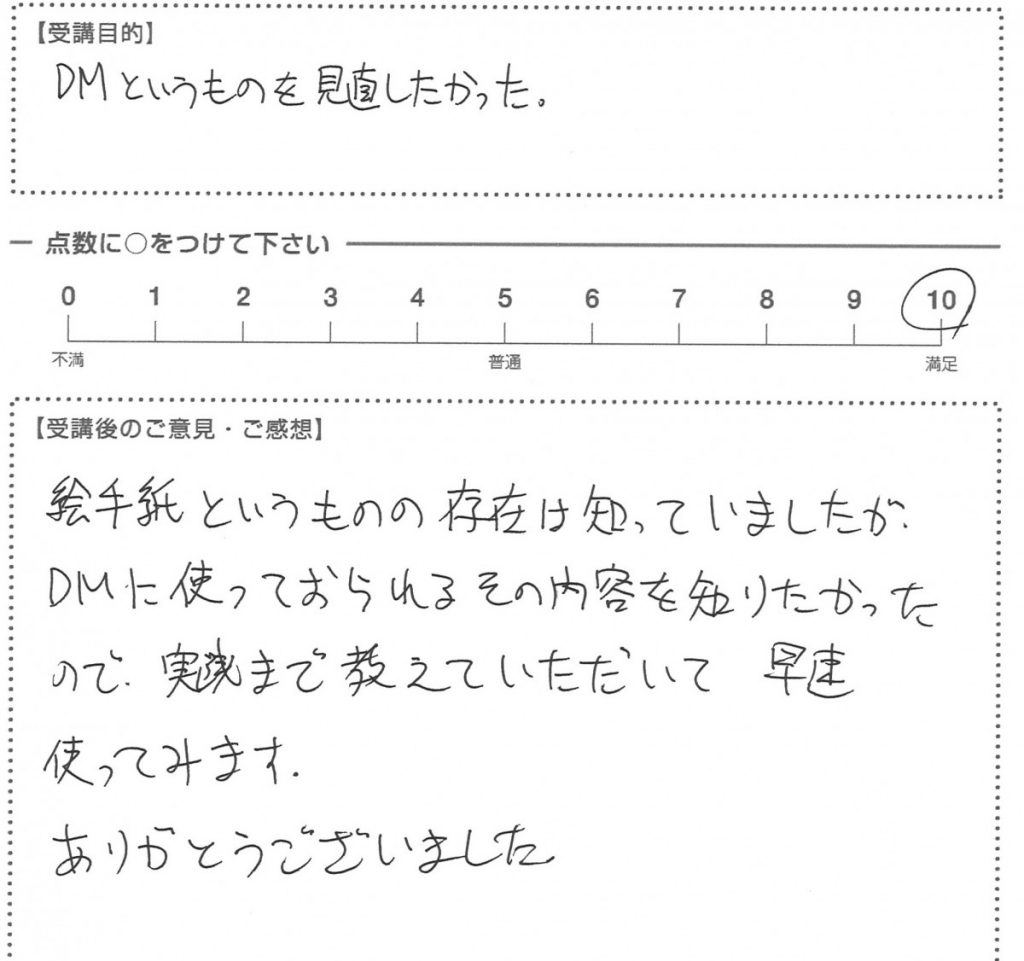 【受講目的】
DMというものを見直したかった。
点数に○をつけて下さい
0 1 2 3 4 5 6 7 8 9 10
不満 普通 満足
【受講後のご意見・ご感想】
絵手紙というものの存在は知っていましたが、
DMに使っておられるその内容を知りたかった
ので、実践まで教えていただいて 早速
使ってみます。
ありがとうございました